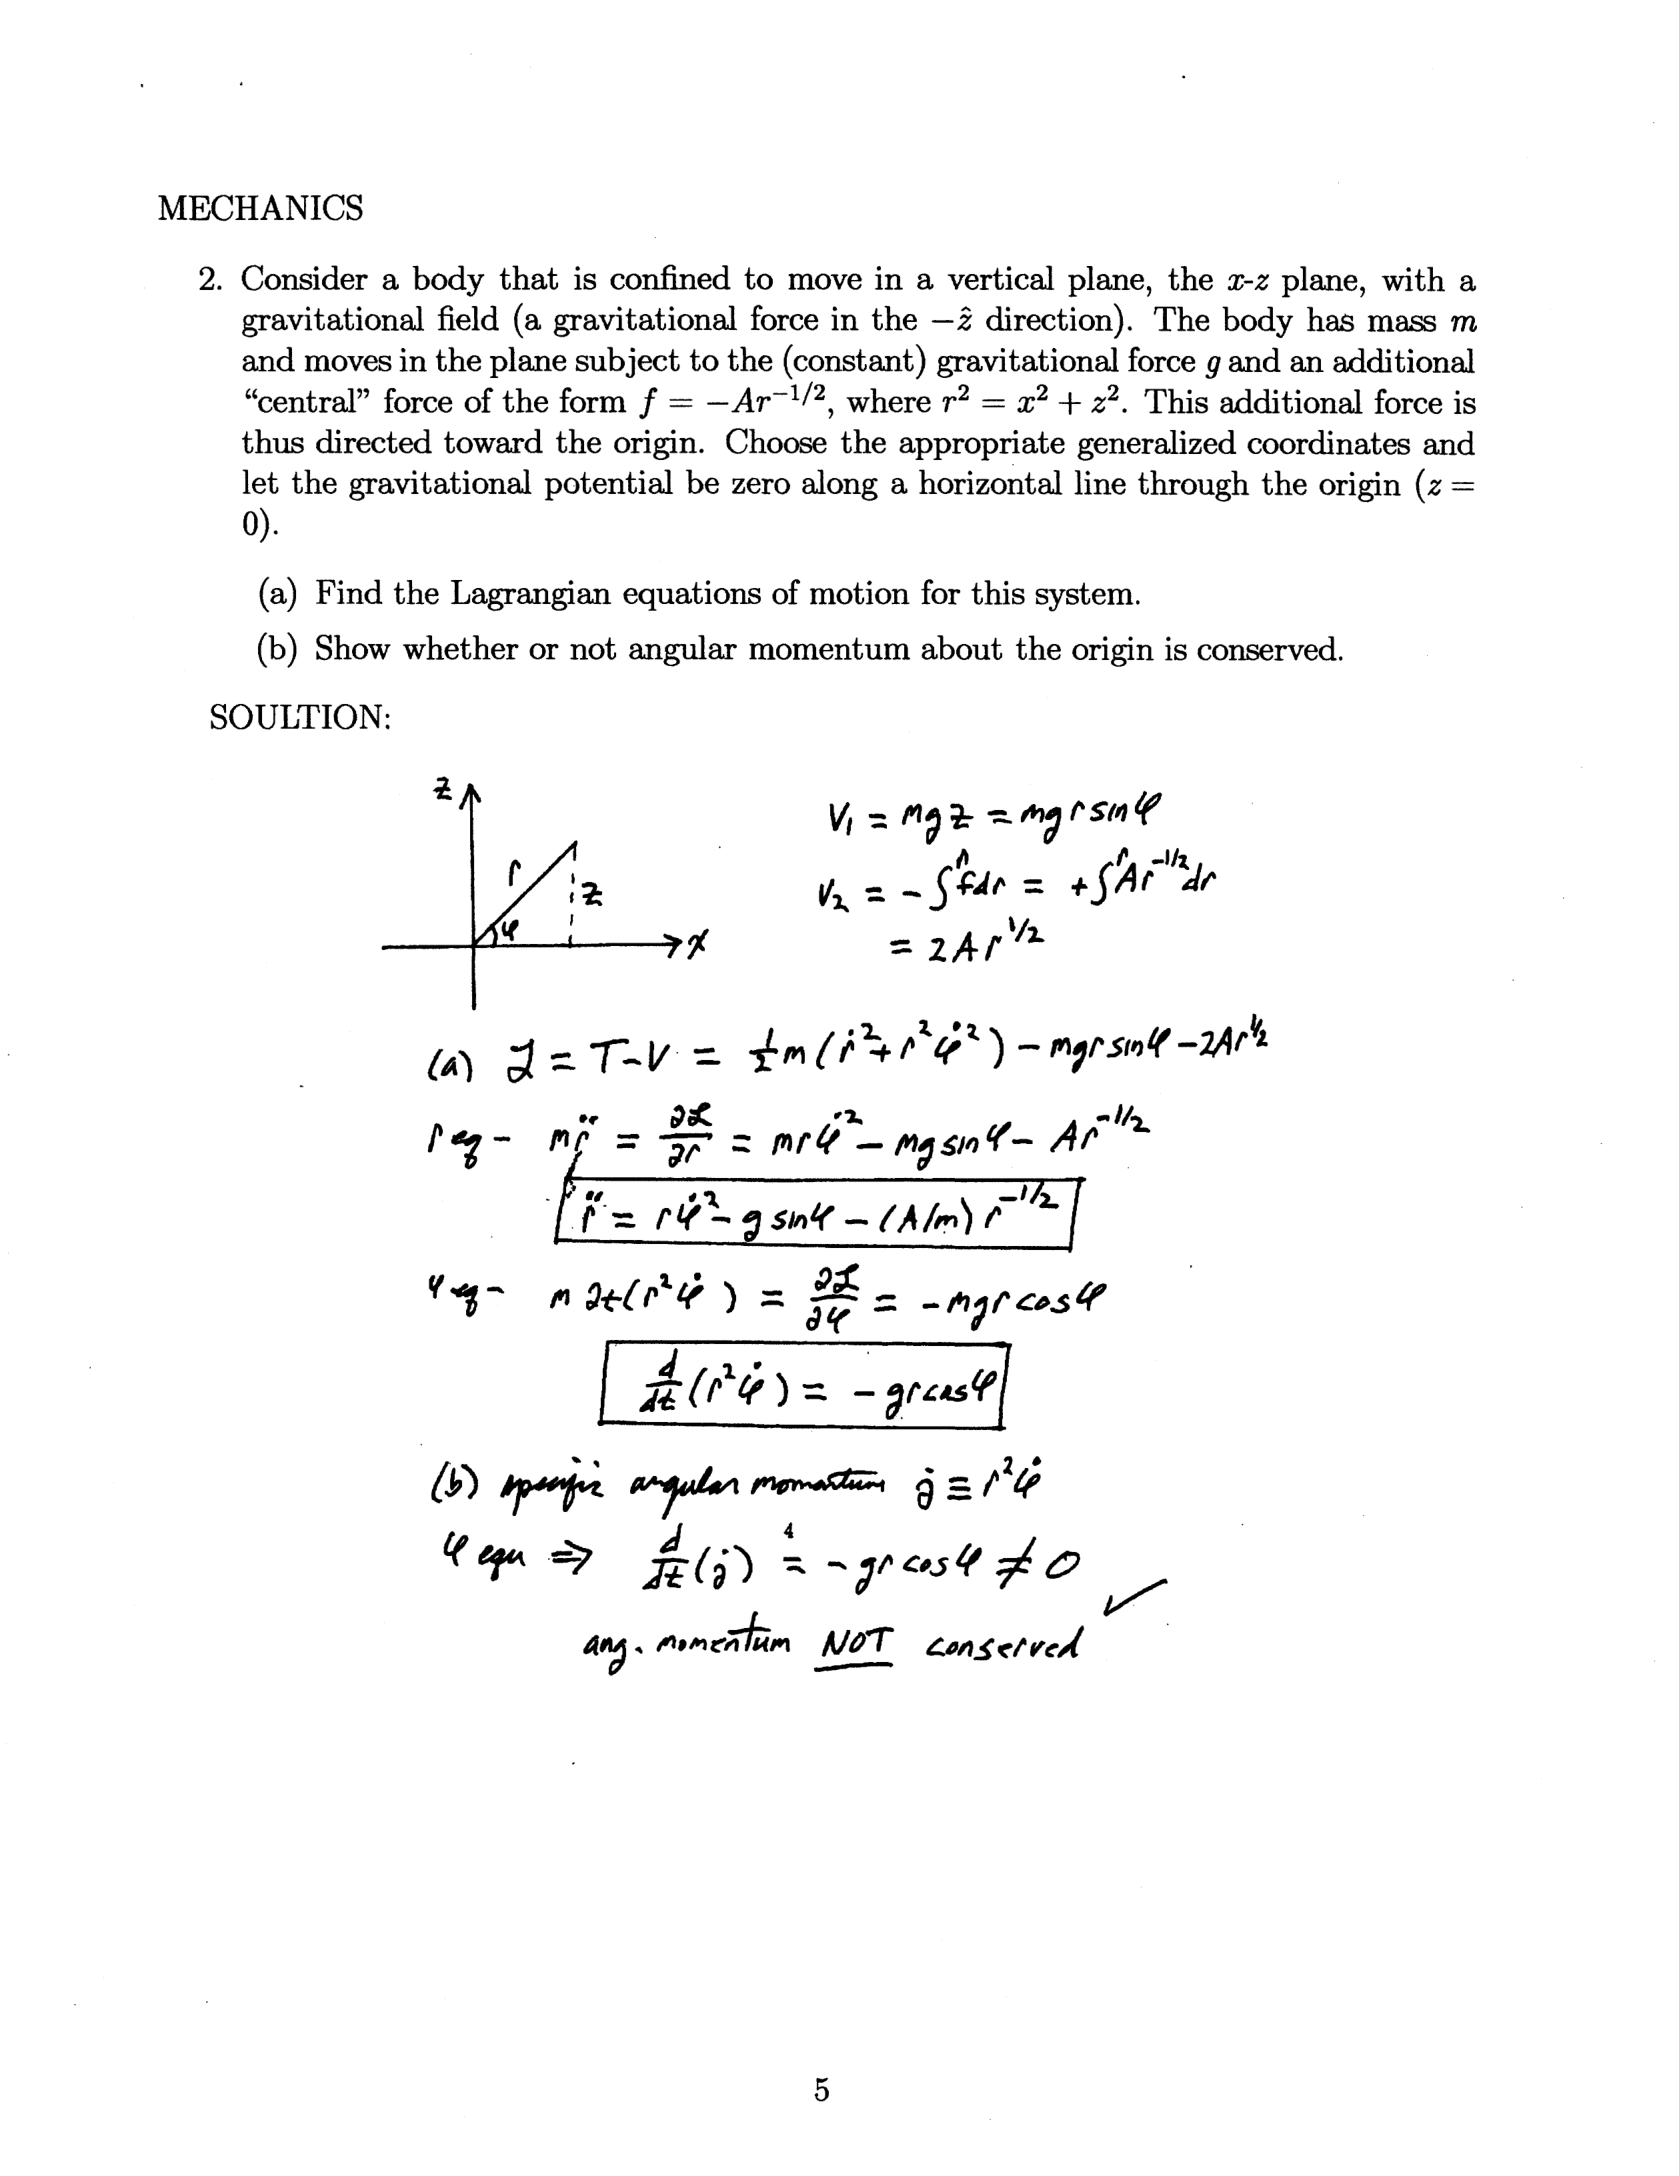 MECHANICS
2. Consider a body that is confined to move in a vertical plane, the x-z plane, with a
gravitational field (a gravitational force in the −ẑ direction). The body has mass m
and moves in the plane subject to the (constant) gravitational force g and an additional
“central” force of the form f = −Ar^{−1/2}, where r² = x² + z². This additional force is
thus directed toward the origin. Choose the appropriate generalized coordinates and
let the gravitational potential be zero along a horizontal line through the origin (z =
0).
(a) Find the Lagrangian equations of motion for this system.
(b) Show whether or not angular momentum about the origin is conserved.
SOULTION:
z
r
z
φ
x
V₁ = mgz = mgr sinφ
V₂ = −∫^r f dr = +∫^r Ar^{−1/2} dr
= 2Ar^{1/2}
(a) ℒ = T−V = ½m(ṙ² + r²φ̇²) − mgr sinφ − 2Ar^{1/2}
r eq − mr̈ = ∂ℒ/∂r = mrφ̇² − mg sinφ − Ar^{−1/2}
r̈ = rφ̇² − g sinφ − (A/m) r^{−1/2}
φ eq − m ∂t(r²φ̇) = ∂ℒ/∂φ = −mgr cosφ
d/dt (r²φ̇) = −gr cosφ
(b) specific angular momentum j ≡ r²φ̇
4
φ equ ⇒ d/dt (j) = −gr cosφ ≠ 0
✓
ang. momentum NOT conserved
5